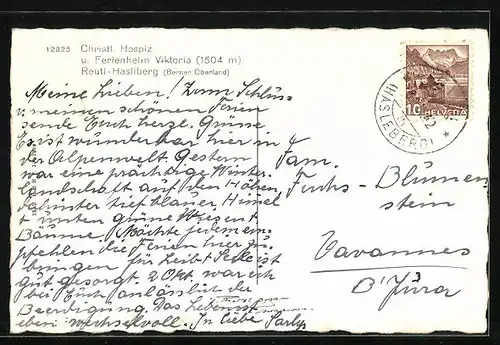 12825 Christl. Hospiz
u. Ferienheim Viktoria (1504 m)
Reuti-Hasliberg (Berner Oberland)
Meine Lieben! Zum Schluss
v. meinen schönen Ferien
sende Euch herzl. Grüsse
Es ist wunderbar hier in
der Alpenwelt. Gestern
war eine prächtige Winter-
landschaft auf den Höhen,
dahinter tief blauer Himmel
& unten grüne Wiesen &
Bäume. Möchte jedem em-
pfehlen die Ferien hier zu
bringen für Leib & Seele ist
gut gesorgt. 2 Okt. war ich
bei Euch anlässlich der
Beerdigung. Das Leben ist
eben wechselvoll. In Liebe
Fam.
Fuchs - Blumen-
stein
Tavannes
B'Jura
10 HELVETIA
(HASLEBERG)